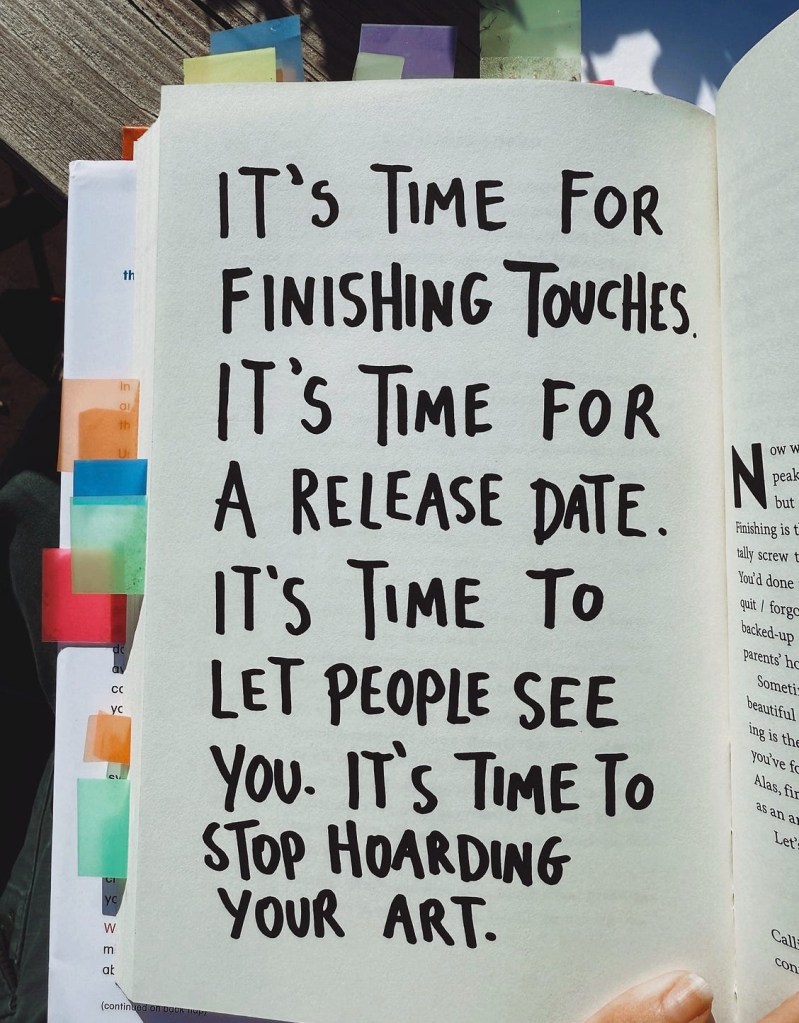 IT'S TIME FOR
FINISHING TOUCHES.
IT'S TIME FOR
A RELEASE DATE.
IT'S TIME TO
LET PEOPLE SEE
YOU. IT'S TIME TO
STOP HOARDING
YOUR ART.
th
in
th
yo
W
(continued on back flap)
Now w
peak
but
Finishing is t
tally screw t
You'd done
quit / forgo
backed-up
parents' ho
Someti
beautiful
ing is the
you've fo
Alas, fin
as an a
Let's
Call
con